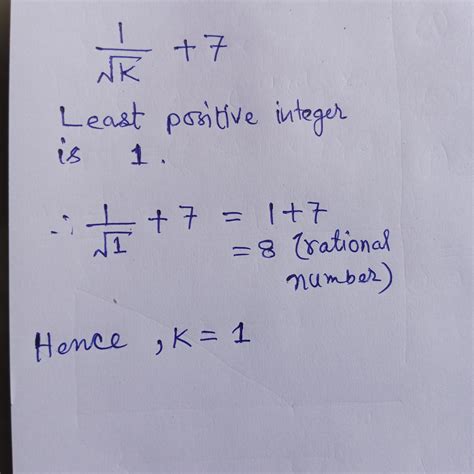 1/√K + 7
Least positive integer
is 1.
∴ 1/√1 + 7 = 1+7
= 8 (rational
number)
Hence , K = 1